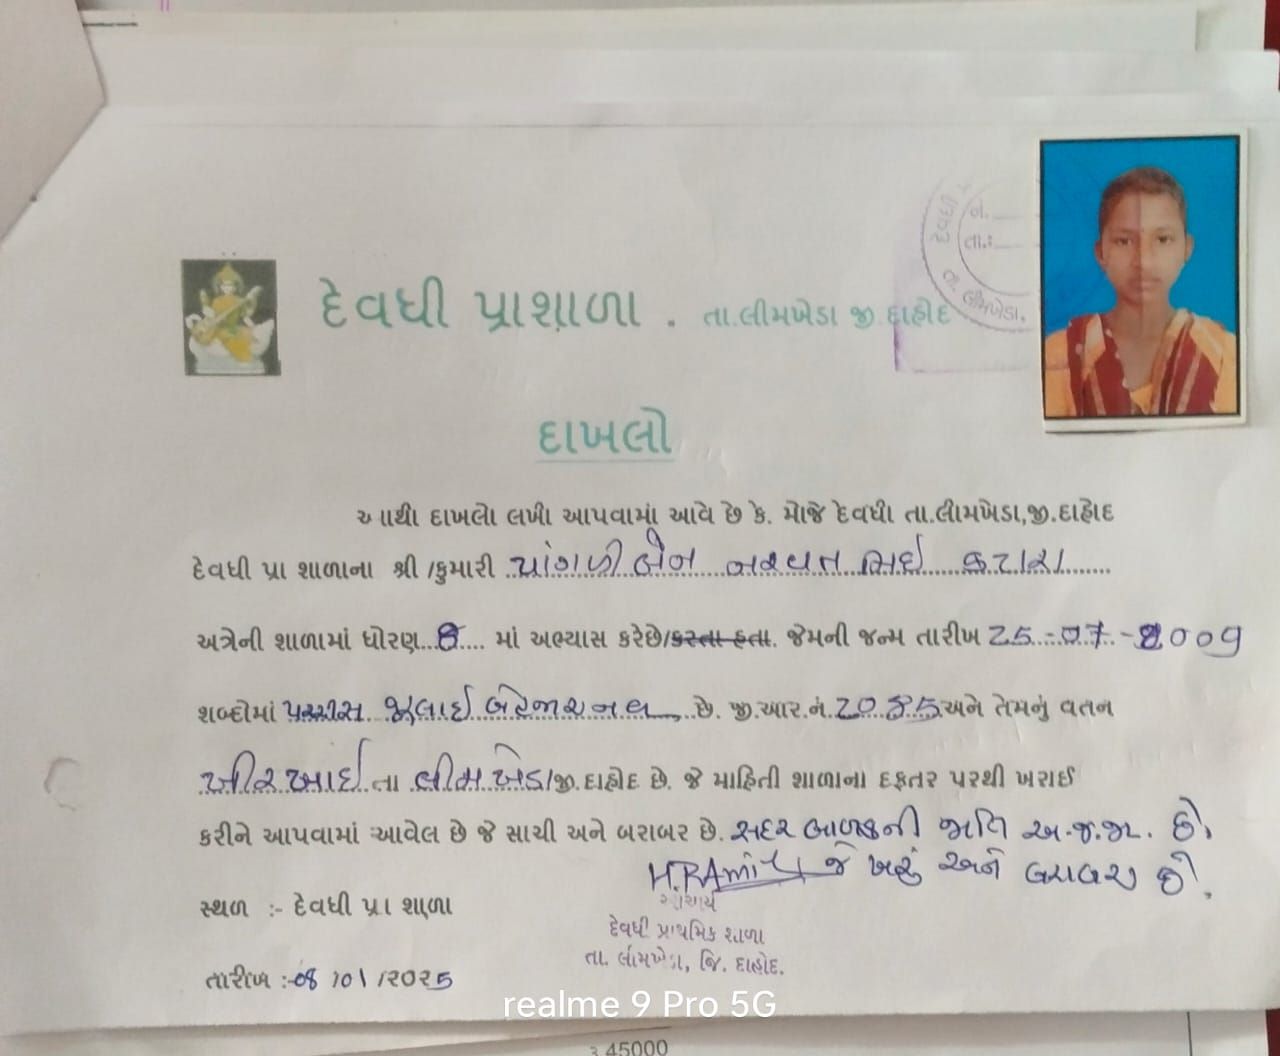 નં.
તા.:
દેવધી
તા. લીમખેડા,
દેવધી પ્રાશાળા . તા.લીમખેડા જી દાહોદ
દાખલો
આથી દાખલો લખી આપવામાં આવે છે કે. મોજે દેવધી તા.લીમખેડા,જી.દાહોદ
દેવધી પ્રા શાળાના શ્રી /કુમારી બેન ભાઈ કટારા
અત્રેની શાળામાં ધોરણ..8.... માં અભ્યાસ કરેછે/કરતા હતા. જેમની જન્મ તારીખ 25-07-2009
શબ્દોમાં પચ્ચીસ જુલાઈ બે હજાર નવ છે. જી.આર.નં.2085 અને તેમનું વતન
ખીરખાઈ તા લીમખેડા જી.દાહોદ છે. જે માહિતી શાળાના દફતર પરથી ખરાઈ
કરીને આપવામાં આવેલ છે જે સાચી અને બરાબર છે. સદર બાળકની જાતિ અ.જ.જા. છે.
H.RAmi જે ખરું અને બરાબર છે.
આચાર્ય
સ્થળ :- દેવધી પ્રા શાળા
દેવધી પ્રાથમિક શાળા
તા. લીમખેડા, જિ. દાહોદ.
તારીખ :-08/01/૨૦૨5
realme 9 Pro 5G
45000